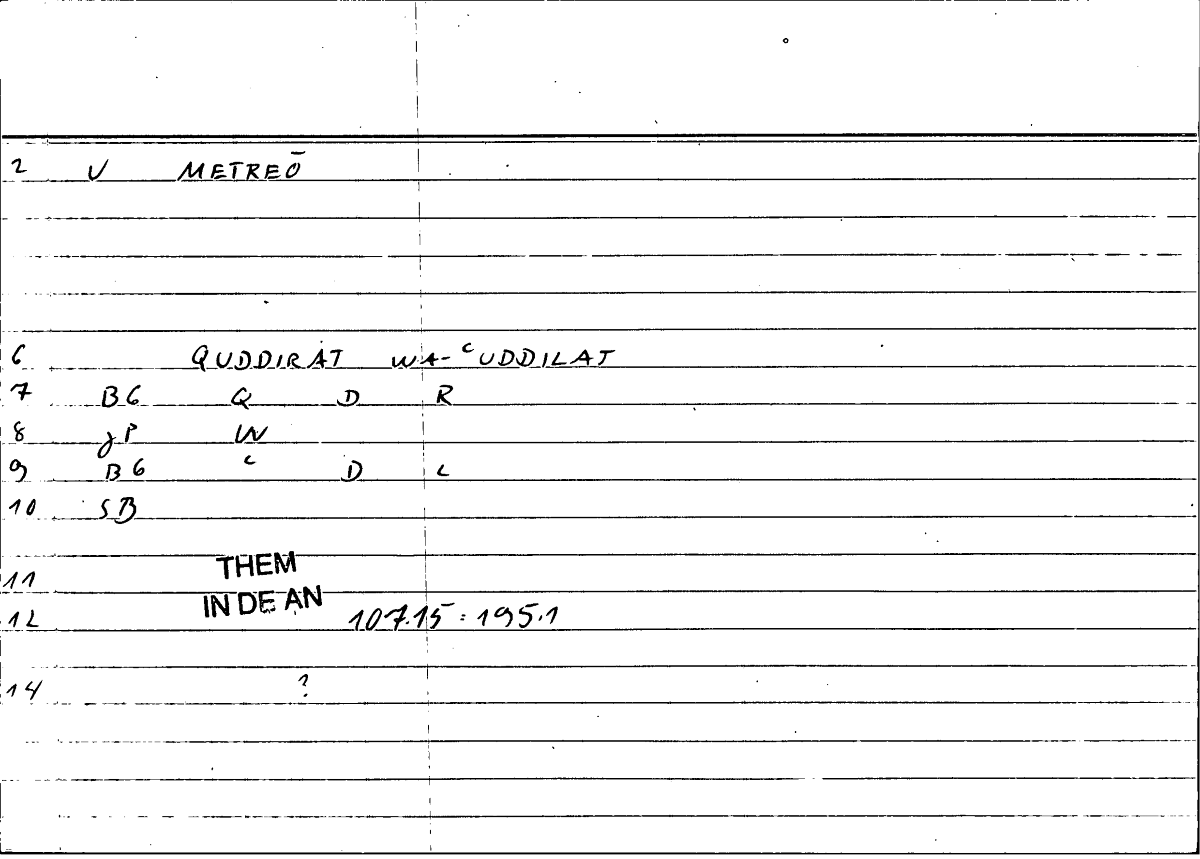 2 V METREŌ
6 QUDDIRAT WA-ᶜUDDILAT
7 BG Q D R
8 gP W
9 BG ᶜ D L
10 SB
THEM
11
IN DE AN
12 107.15 : 195.1
14 ?